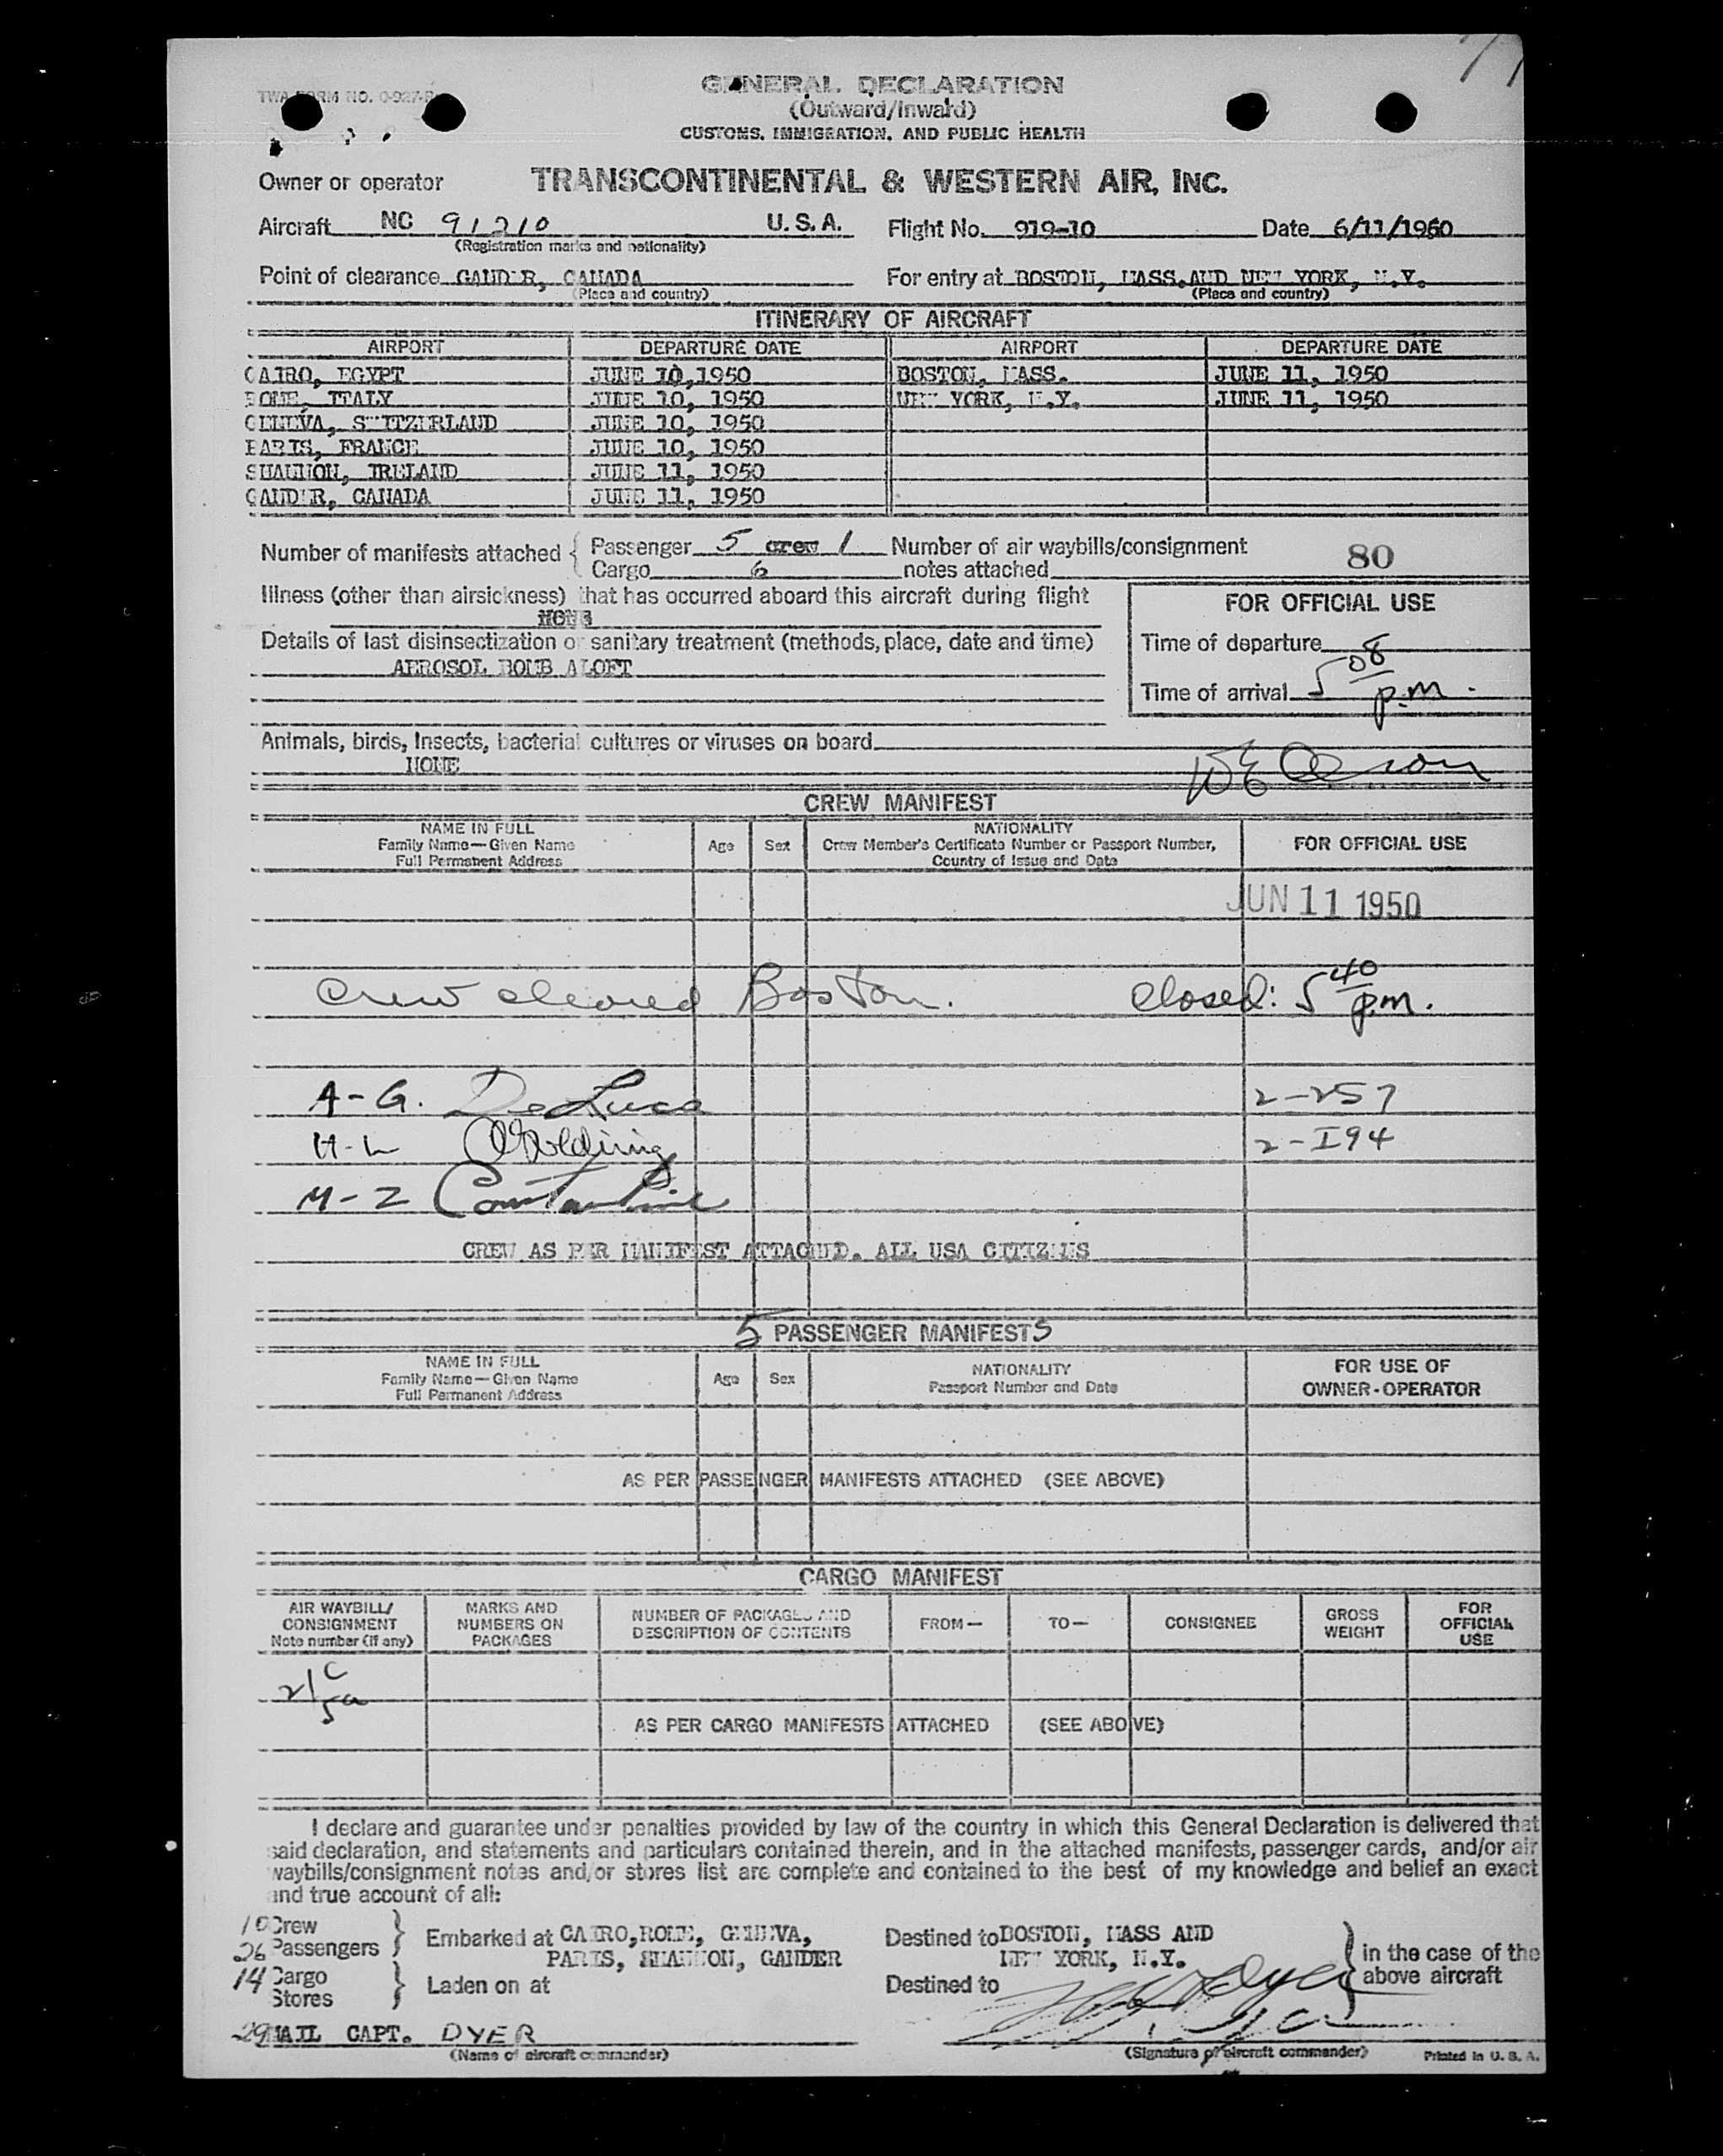 TWA FORM NO. 0-927-
GENERAL DECLARATION
(Outward/Inward)
CUSTOMS, IMMIGRATION, AND PUBLIC HEALTH
Owner or operator TRANSCONTINENTAL & WESTERN AIR, INC.
Aircraft NC 91210 U. S. A. Flight No. 919-10 Date 6/11/1950
(Registration marks and nationality)
Point of clearance GANDER, CANADA For entry at BOSTON, MASS. AND NEW YORK, N.Y.
(Place and country) (Place and country)
ITINERARY OF AIRCRAFT
AIRPORT DEPARTURE DATE AIRPORT DEPARTURE DATE
CAIRO, EGYPT JUNE 10,1950 BOSTON, MASS. JUNE 11, 1950
ROME, ITALY JUNE 10, 1950 NEW YORK, N.Y. JUNE 11, 1950
GENEVA, SWITZERLAND JUNE 10, 1950
PARIS, FRANCE JUNE 10, 1950
SHANNON, IRELAND JUNE 11, 1950
GANDER, CANADA JUNE 11, 1950
Number of manifests attached { Passenger 5 crew 1 Number of air waybills/consignment 80
Cargo 6 notes attached
Illness (other than airsickness) that has occurred aboard this aircraft during flight
NONE
FOR OFFICIAL USE
Details of last disinsectization or sanitary treatment (methods, place, date and time)
AEROSOL BOMB ALOFT
Time of departure
Time of arrival 5 08 p.m.
Animals, birds, insects, bacterial cultures or viruses on board
NONE
CREW MANIFEST
NAME IN FULL
Family Name—Given Name
Full Permanent Address
Age Sex
NATIONALITY
Crew Member's Certificate Number or Passport Number,
Country of Issue and Date
FOR OFFICIAL USE
JUN 11 1950
Crew cleared Boston. Closed: 5 40 p.m.
A-G. DeLuca 2-257
H-L Golding 2-I94
M-Z Constantine
CREW AS PER MANIFEST ATTACHED. ALL USA CITIZENS
5 PASSENGER MANIFESTS
NAME IN FULL
Family Name—Given Name
Full Permanent Address
Age Sex
NATIONALITY
Passport Number and Date
FOR USE OF
OWNER-OPERATOR
AS PER PASSENGER MANIFESTS ATTACHED (SEE ABOVE)
CARGO MANIFEST
AIR WAYBILL/
CONSIGNMENT
Note number (if any)
MARKS AND
NUMBERS ON
PACKAGES
NUMBER OF PACKAGES AND
DESCRIPTION OF CONTENTS
FROM— TO— CONSIGNEE
GROSS
WEIGHT
FOR
OFFICIAL
USE
AS PER CARGO MANIFESTS ATTACHED (SEE ABOVE)
I declare and guarantee under penalties provided by law of the country in which this General Declaration is delivered that
said declaration, and statements and particulars contained therein, and in the attached manifests, passenger cards, and/or air
waybills/consignment notes and/or stores list are complete and contained to the best of my knowledge and belief an exact
and true account of all:
10 Crew
26 Passengers
Embarked at CAIRO, ROME, GENEVA,
PARIS, SHANNON, GANDER
Destined to BOSTON, MASS AND
NEW YORK, N.Y.
in the case of the
above aircraft
14 Cargo
Stores
Laden on at Destined to
29 MAIL CAPT. DYER
(Name of aircraft commander) (Signature of aircraft commander) Printed in U. S. A.